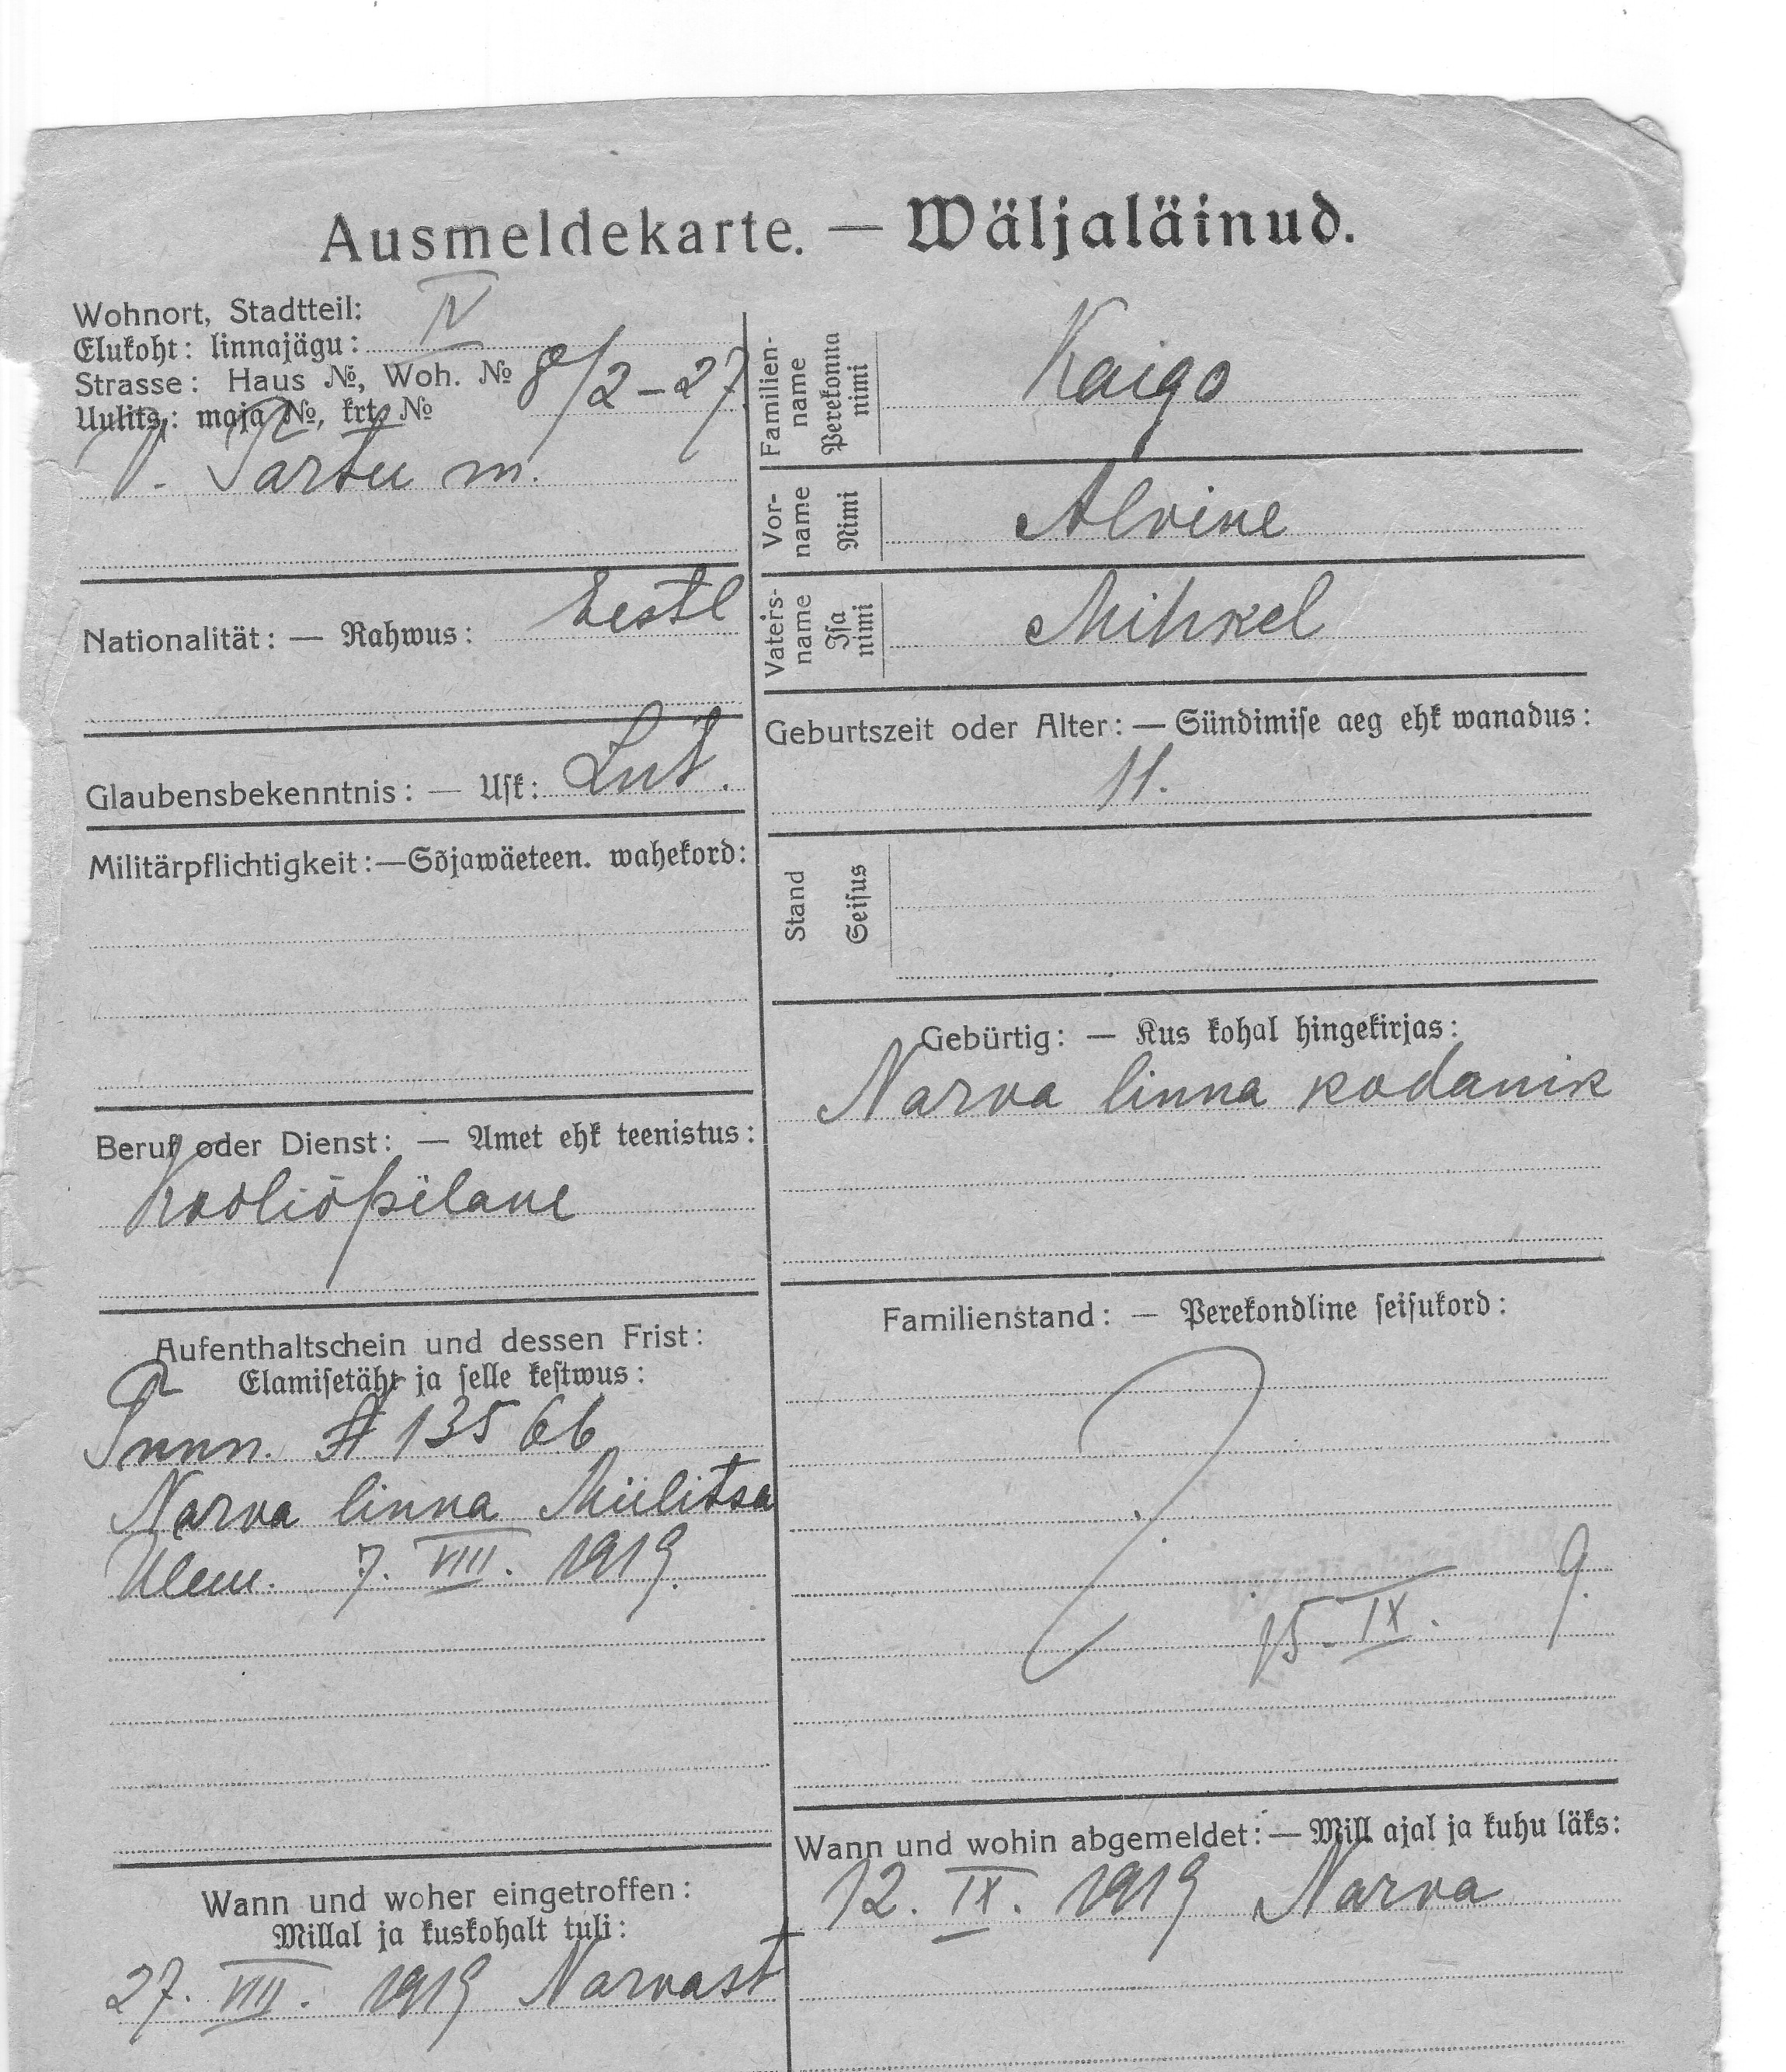 Ausmeldekarte. — Wäljaläinud.
Wohnort, Stadtteil: IV
Elukoht: linnajägu:
Strasse: Haus №, Woh. № 8/2–27
Uulits: maja №, krt. №
V. Tartu m.
Nationalität: — Rahwus: Eestl
Glaubensbekenntnis: — Usk: Lut.
Militärpflichtigkeit:—Sõjawäeteen. wahekord:
Beruf oder Dienst: — Amet ehk teenistus:
Kooliõpilane
Aufenthaltschein und dessen Frist:
Elamisetäht ja selle kestwus:
Tunn. # 13566
Narva linna Miilitsa
Ülem. 7. VIII. 1919.
Wann und woher eingetroffen:
Millal ja kuskohalt tuli:
27. VIII. 1919 Narvast
Familien-
name
Perekonna
nimi
Kaigo
Vor-
name
Nimi
Alvine
Vaters-
name
Isa
nimi
Mihkel
Geburtszeit oder Alter: — Sündimise aeg ehk wanadus:
11.
Stand
Seisus
Gebürtig: — Kus kohal hingekirjas:
Narva linna kodanik
Familienstand: — Perekondline seisukord:
15. IX. 9.
Wann und wohin abgemeldet: — Mill ajal ja kuhu läks:
12. IX. 1919 Narva